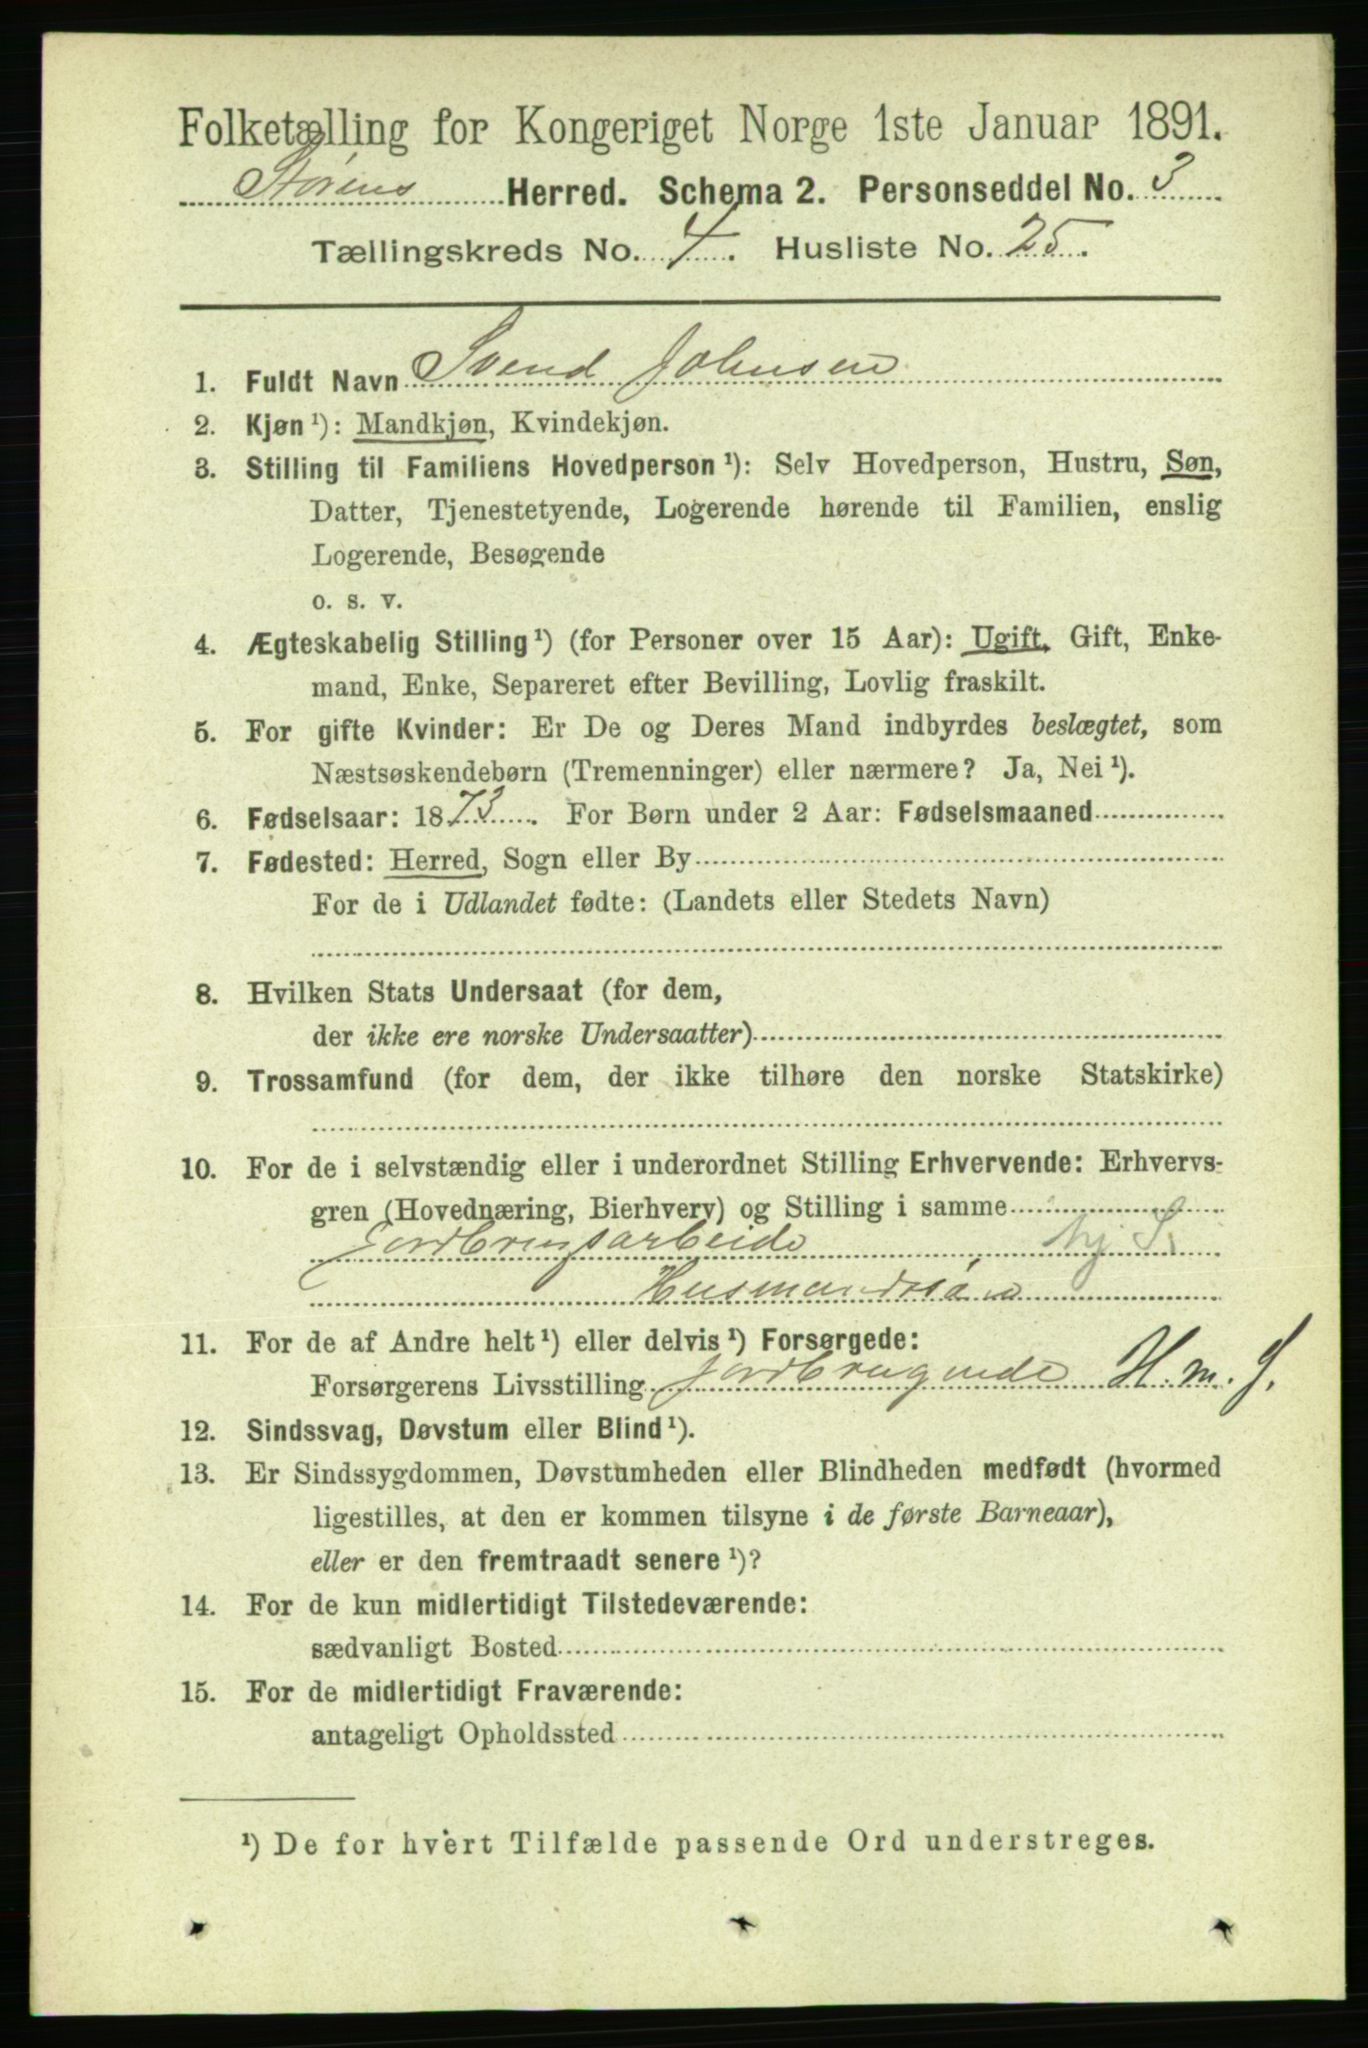 Folketælling for Kongeriget Norge 1ste Januar 1891.
Størens Herred. Schema 2. Personseddel No. 3
Tællingskreds No. 4. Husliste No. 25.
1. Fuldt Navn Svend Johnsen
2. Kjøn ¹): Mandkjøn, Kvindekjøn.
3. Stilling til Familiens Hovedperson ¹): Selv Hovedperson, Hustru, Søn,
Datter, Tjenestetyende, Logerende hørende til Familien, enslig
Logerende, Besøgende
o. s. v.
4. Ægteskabelig Stilling ¹) (for Personer over 15 Aar): Ugift, Gift, Enke-
mand, Enke, Separeret efter Bevilling, Lovlig fraskilt.
5. For gifte Kvinder: Er De og Deres Mand indbyrdes beslægtet, som
Næstsøskendebørn (Tremenninger) eller nærmere? Ja, Nei ¹).
6. Fødselsaar: 1873. For Børn under 2 Aar: Fødselsmaaned
7. Fødested: Herred, Sogn eller By
For de i Udlandet fødte: (Landets eller Stedets Navn)
8. Hvilken Stats Undersaat (for dem,
der ikke ere norske Undersaatter)
9. Trossamfund (for dem, der ikke tilhøre den norske Statskirke)
10. For de i selvstændig eller i underordnet Stilling Erhvervende: Erhvervs-
gren (Hovednæring, Bierhverv) og Stilling i samme
Jordbrugsarbeide S.
Husmandssøn
11. For de af Andre helt ¹) eller delvis ¹) Forsørgede:
Forsørgerens Livsstilling Jordbrugende H. m. J.
12. Sindssvag, Døvstum eller Blind ¹).
13. Er Sindssygdommen, Døvstumheden eller Blindheden medfødt (hvormed
ligestilles, at den er kommen tilsyne i de første Barneaar),
eller er den fremtraadt senere ¹)?
14. For de kun midlertidigt Tilstedeværende:
sædvanligt Bosted
15. For de midlertidigt Fraværende:
antageligt Opholdssted
¹) De for hvert Tilfælde passende Ord understreges.